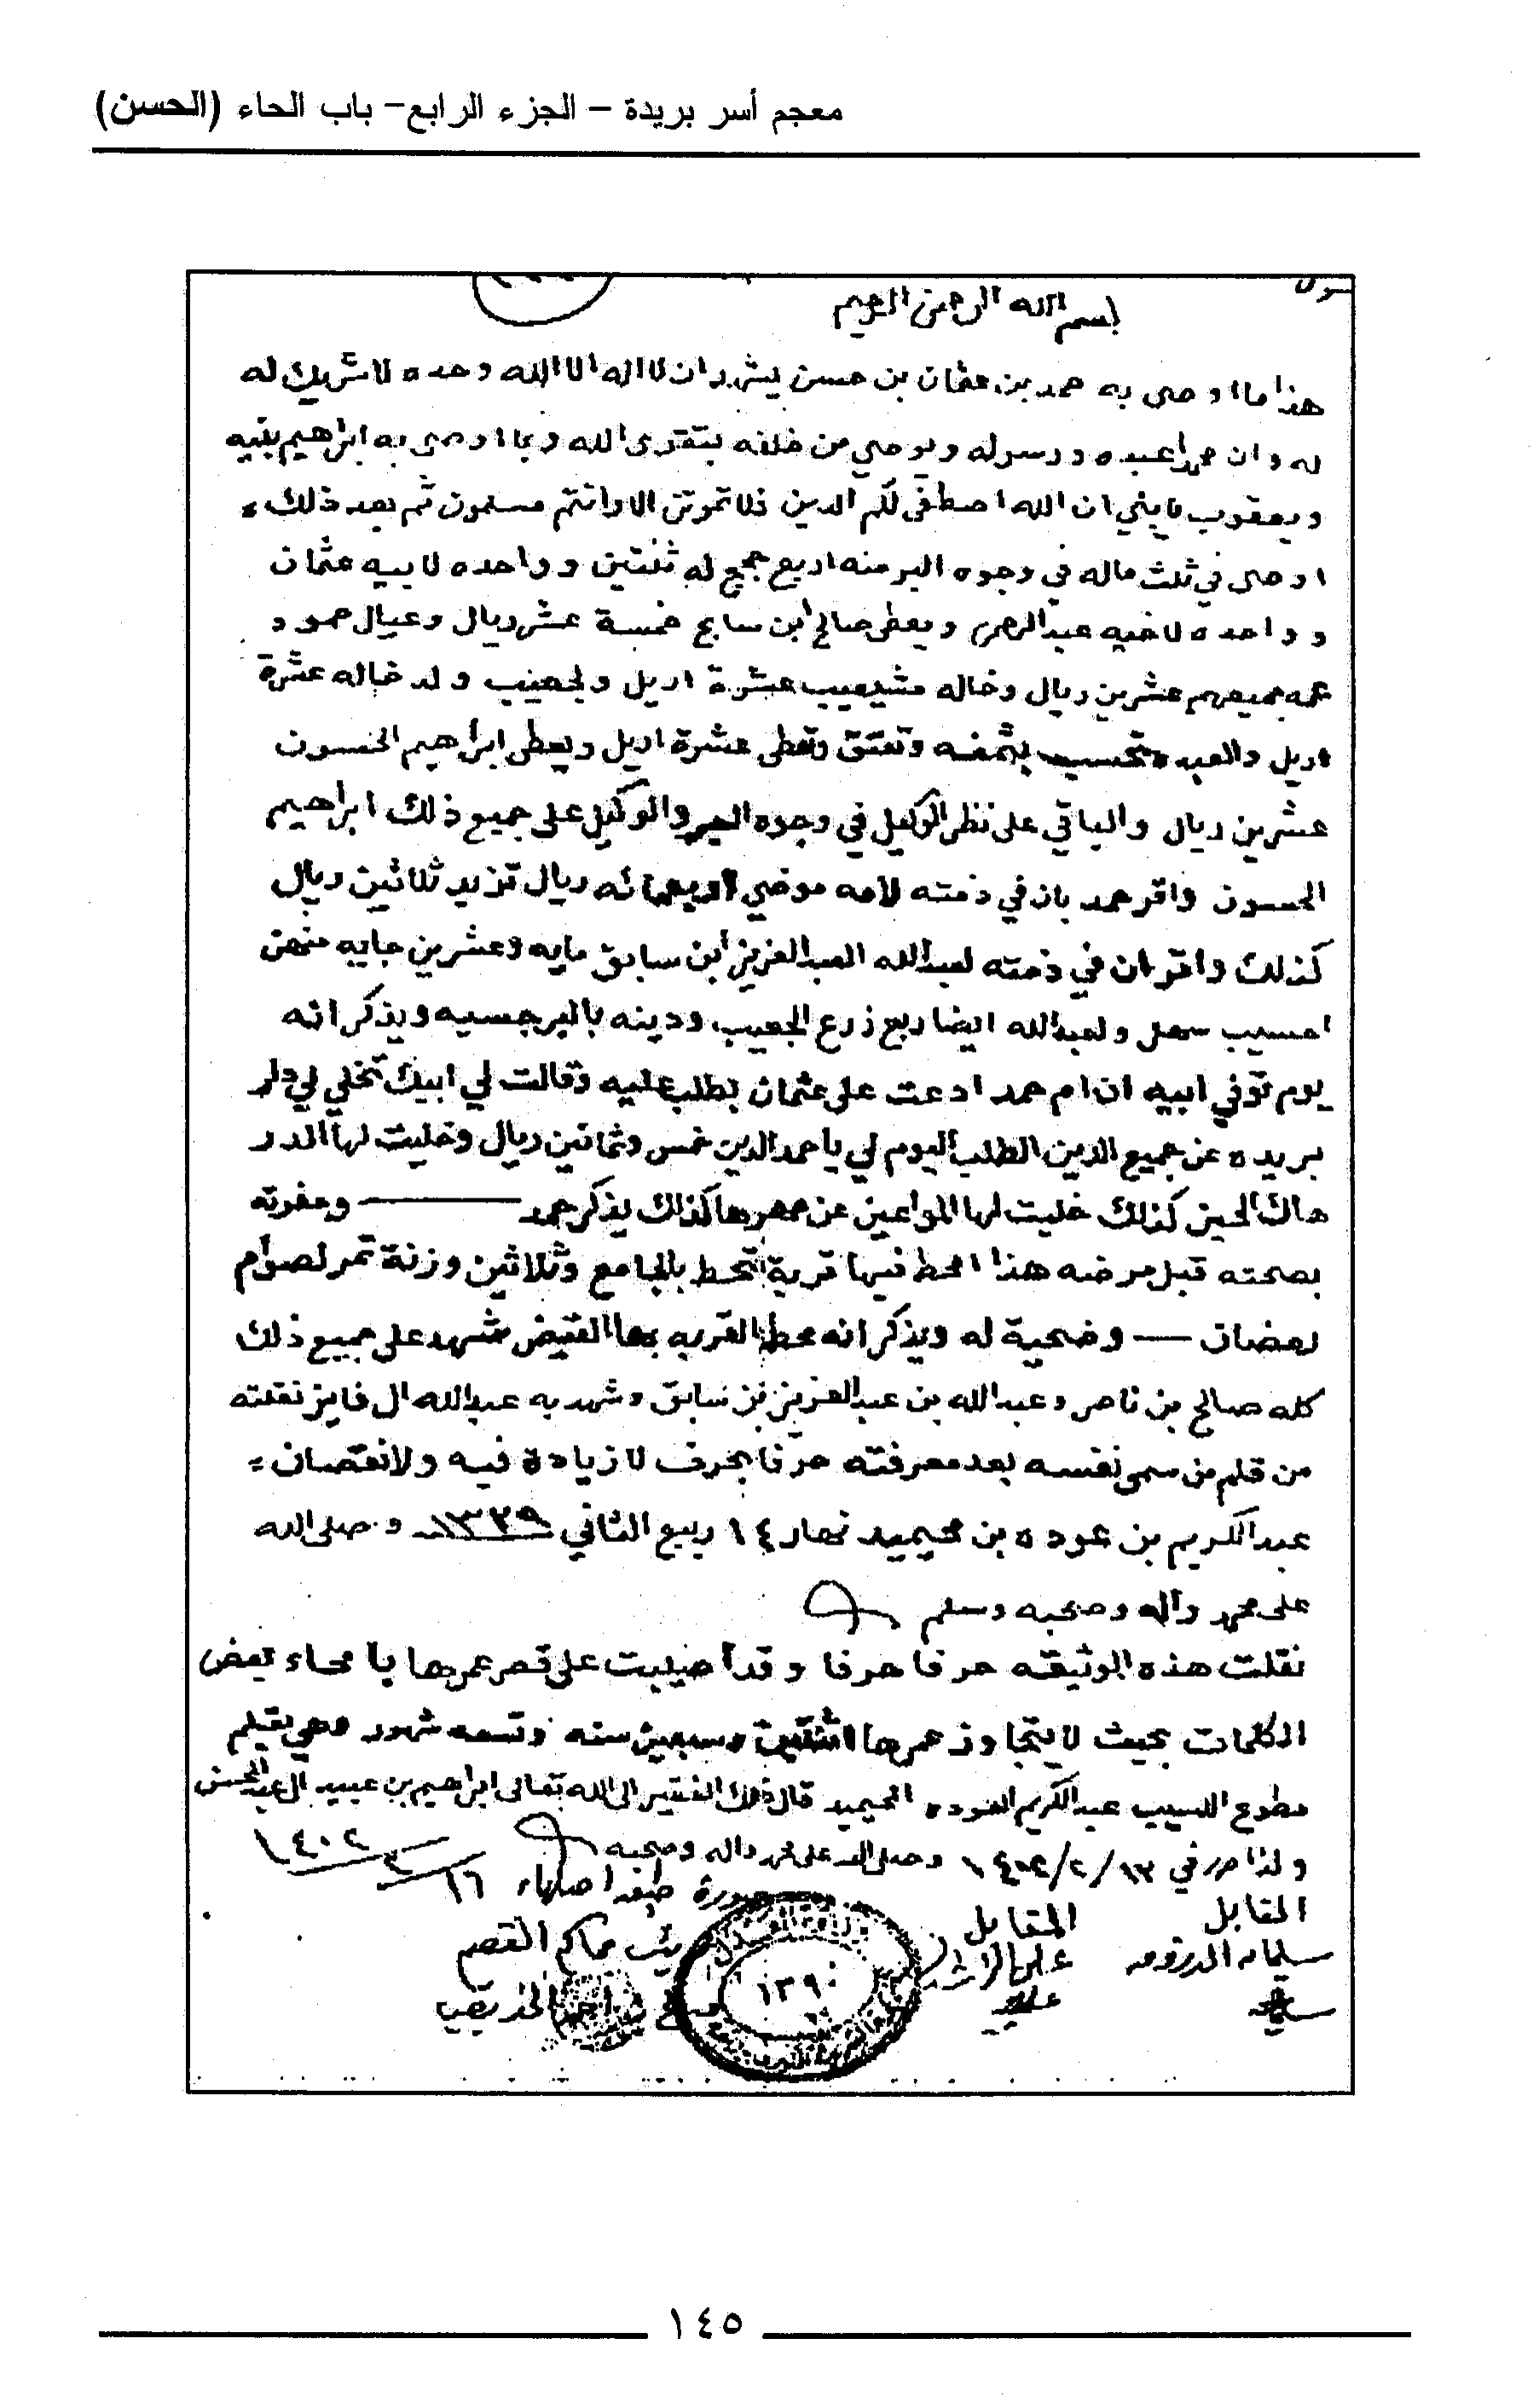 معجم أسر بريدة – الجزء الرابع– باب الحاء (الحسن)
بسم الله الرحمن الرحيم
هذا ما اوصى به حمد بن عثمان بن حسن يشهد ان لا اله الا الله وحده لا شريك له
له وان محمدا عبده ورسوله ويوصي من خلفه بتقوى الله وبما اوصى به ابراهيم بنيه
ويعقوب يا بني ان الله اصطفى لكم الدين فلا تموتن الا وانتم مسلمون ثم بعد ذلك
اوصى في ثلث ماله في وجوه البر منه اربع حجج له ثنتين وواحده لابيه عثمان
وواحده لاخيه عبدالرحمن ويعطى صالح ابن سابح خمسة عشر ريال وعيال حمود
عمه جميعهم عشرين ريال وخاله مشيعيب عشرة اريل ولجعيب ولد خاله عشرة
اريل والعبده تحسب بثمنه وتعتق وتعطى عشرة اريل ويعطى ابراهيم الحسون
عشرين ريال والباقي على نظر الوكيل في وجوه البر والوكيل على جميع ذلك ابراهيم
الحسون واقر حمد بان في ذمته لامه موضي اربعمائه ريال تزيد ثلاثين ريال
كذلك واقر ان في ذمته لعبدالله العبدالعزيز ابن سابق مايه وعشرين جايه منهن
احسيب سهل ولعبدالله ايضا ربع زرع الجعيب ودينه بالبرجسيه ويذكر انه
يوم توفي ابيه ان ام حمد ادعت على عثمان بطلب عليه وقالت لي ابيك تخلي لي دار
بريده عن جميع الدين الطلب اليوم لي يا حمد الدين خمس وثمانين ريال وخليت لها الدار
هاك الحين كذلك خليت لها المواعين عن مهرها كذلك يذكر حمد — وعفرته
بصحته قبل مرضه هذا الحط فيها قربة تحط بالجامع وثلاثين وزنة تمر لصوام
رمضان — وضحية له ويذكر انه محط القربه بها القيض شهد على جميع ذلك
كله صالح بن ناصر وعبدالله بن عبدالعزيز بن سابق وشهد به عبدالله ال فايز نقلته
من قلم من سمى نفسه بعد معرفته حرفا بحرف لا زيادة فيه ولا نقصان
عبدالكريم بن عوده بن محيميد نهار ١٤ ربيع الثاني ١٣٢٩ وصلى الله
على محمد وآله وصحبه وسلم
نقلت هذه الوثيقه حرفا حرفا وقد اصيبت على قصر عمرها با محاء بعض
الكلمات بحيث لا يتجاوز عمرها اثنتين وسبعين سنه وتسعه شهور وهي بقلم
مطوع اللسيب عبدالكريم العوده المحيميد قال ذلك الفقير الى الله تعالى ابراهيم بن عبيد ال عبدالمحسن
ولذا حرر في ١٣/٢/١٤٠٢ وصلى الله على محمد واله وصحبه
صورة طبقه اصلها ١٦ / ٢ / ١٤٠٢
المقابل
المقابل
رئيس محاكم القصيم
سليمان الدرزومه
علي الراشد
١٣٩٠
صالح احمد الخريصي
١٤٥